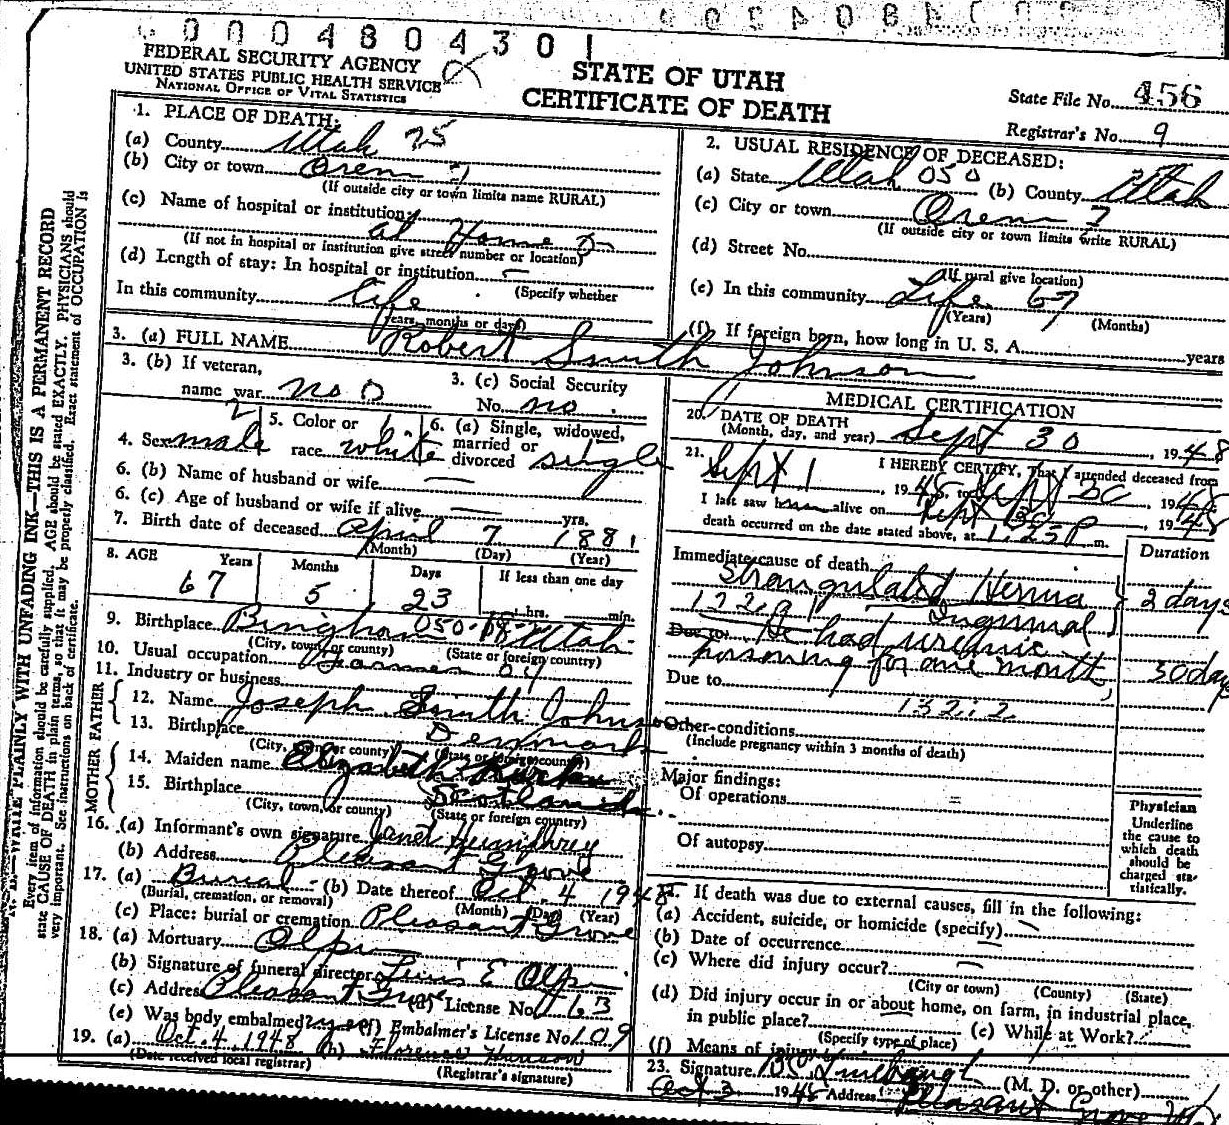 0004804301
FEDERAL SECURITY AGENCY
UNITED STATES PUBLIC HEALTH SERVICE
NATIONAL OFFICE OF VITAL STATISTICS
STATE OF UTAH
CERTIFICATE OF DEATH
State File No. 456
Registrar's No. 9
WRITE PLAINLY WITH UNFADING INK—THIS IS A PERMANENT RECORD
Every item of information should be carefully supplied. AGE should be stated EXACTLY. PHYSICIANS should
state CAUSE OF DEATH in plain terms, so that it may be properly classified. Exact statement of OCCUPATION is
very important. See instructions on back of certificate.
1. PLACE OF DEATH:
(a) County Utah 25
(b) City or town Orem 7
(If outside city or town limits name RURAL)
(c) Name of hospital or institution:
at Home
(If not in hospital or institution give street number or location)
(d) Length of stay: In hospital or institution
(Specify whether
In this community Life
years, months or days)
2. USUAL RESIDENCE OF DECEASED:
(a) State Utah 050 (b) County Utah
(c) City or town Orem 7
(If outside city or town limits write RURAL)
(d) Street No.
(If rural give location)
(e) In this community Life 67
(Years) (Months)
(f) If foreign born, how long in U. S. A. years
3. (a) FULL NAME Robert Smith Johnson
3. (b) If veteran,
name war no
3. (c) Social Security
No. no
4. Sex male
5. Color or
race white
6. (a) Single, widowed,
married or
divorced single
6. (b) Name of husband or wife
6. (c) Age of husband or wife if alive yrs.
7. Birth date of deceased April 7 1881
(Month) (Day) (Year)
8. AGE Years Months Days If less than one day
67 5 23 hrs. min.
9. Birthplace Bingham Utah
(City, town, or county) (State or foreign country)
10. Usual occupation Farmer
11. Industry or business
FATHER
12. Name Joseph Smith Johnson
13. Birthplace Denmark
(City, town, or county) (State or foreign country)
MOTHER
14. Maiden name Elizabeth
15. Birthplace Scotland
(City, town, or county) (State or foreign country)
16. (a) Informant's own signature Janet Humphrey
(b) Address Pleasant Grove
17. (a) Burial (b) Date thereof Oct. 4 1948
(Burial, cremation, or removal) (Month) (Day) (Year)
(c) Place: burial or cremation Pleasant Grove
18. (a) Mortuary Olpin
(b) Signature of funeral director E Olpin
(c) Address Pleasant Grove (d) License No. 163
(e) Was body embalmed? yes (f) Embalmer's License No. 109
19. (a) Oct. 4, 1948 (b) Florence
(Date received local registrar) (Registrar's signature)
MEDICAL CERTIFICATION
20. DATE OF DEATH
(Month, day, and year) Sept 30, 1948
21. I HEREBY CERTIFY, That I attended deceased from
Sept 1, 1948, to Sept 30, 1948
I last saw him alive on Sept 30, 1948
death occurred on the date stated above, at 1:25 P. m.
Duration
Immediate cause of death
Strangulated Hernia
Inguinal
2 days
Due to He had uremic
poisoning for one month,
30 days
Due to
132.2
Other conditions
(Include pregnancy within 3 months of death)
Major findings:
Of operations
Of autopsy
Physician
Underline
the cause to
which death
should be
charged sta-
tistically.
22. If death was due to external causes, fill in the following:
(a) Accident, suicide, or homicide (specify)
(b) Date of occurrence
(c) Where did injury occur?
(City or town) (County) (State)
(d) Did injury occur in or about home, on farm, in industrial place,
in public place?
(Specify type of place)
(e) While at Work?
(f) Means of injury
23. Signature (M. D. or other)
Oct 3 1948 Address Pleasant Grove